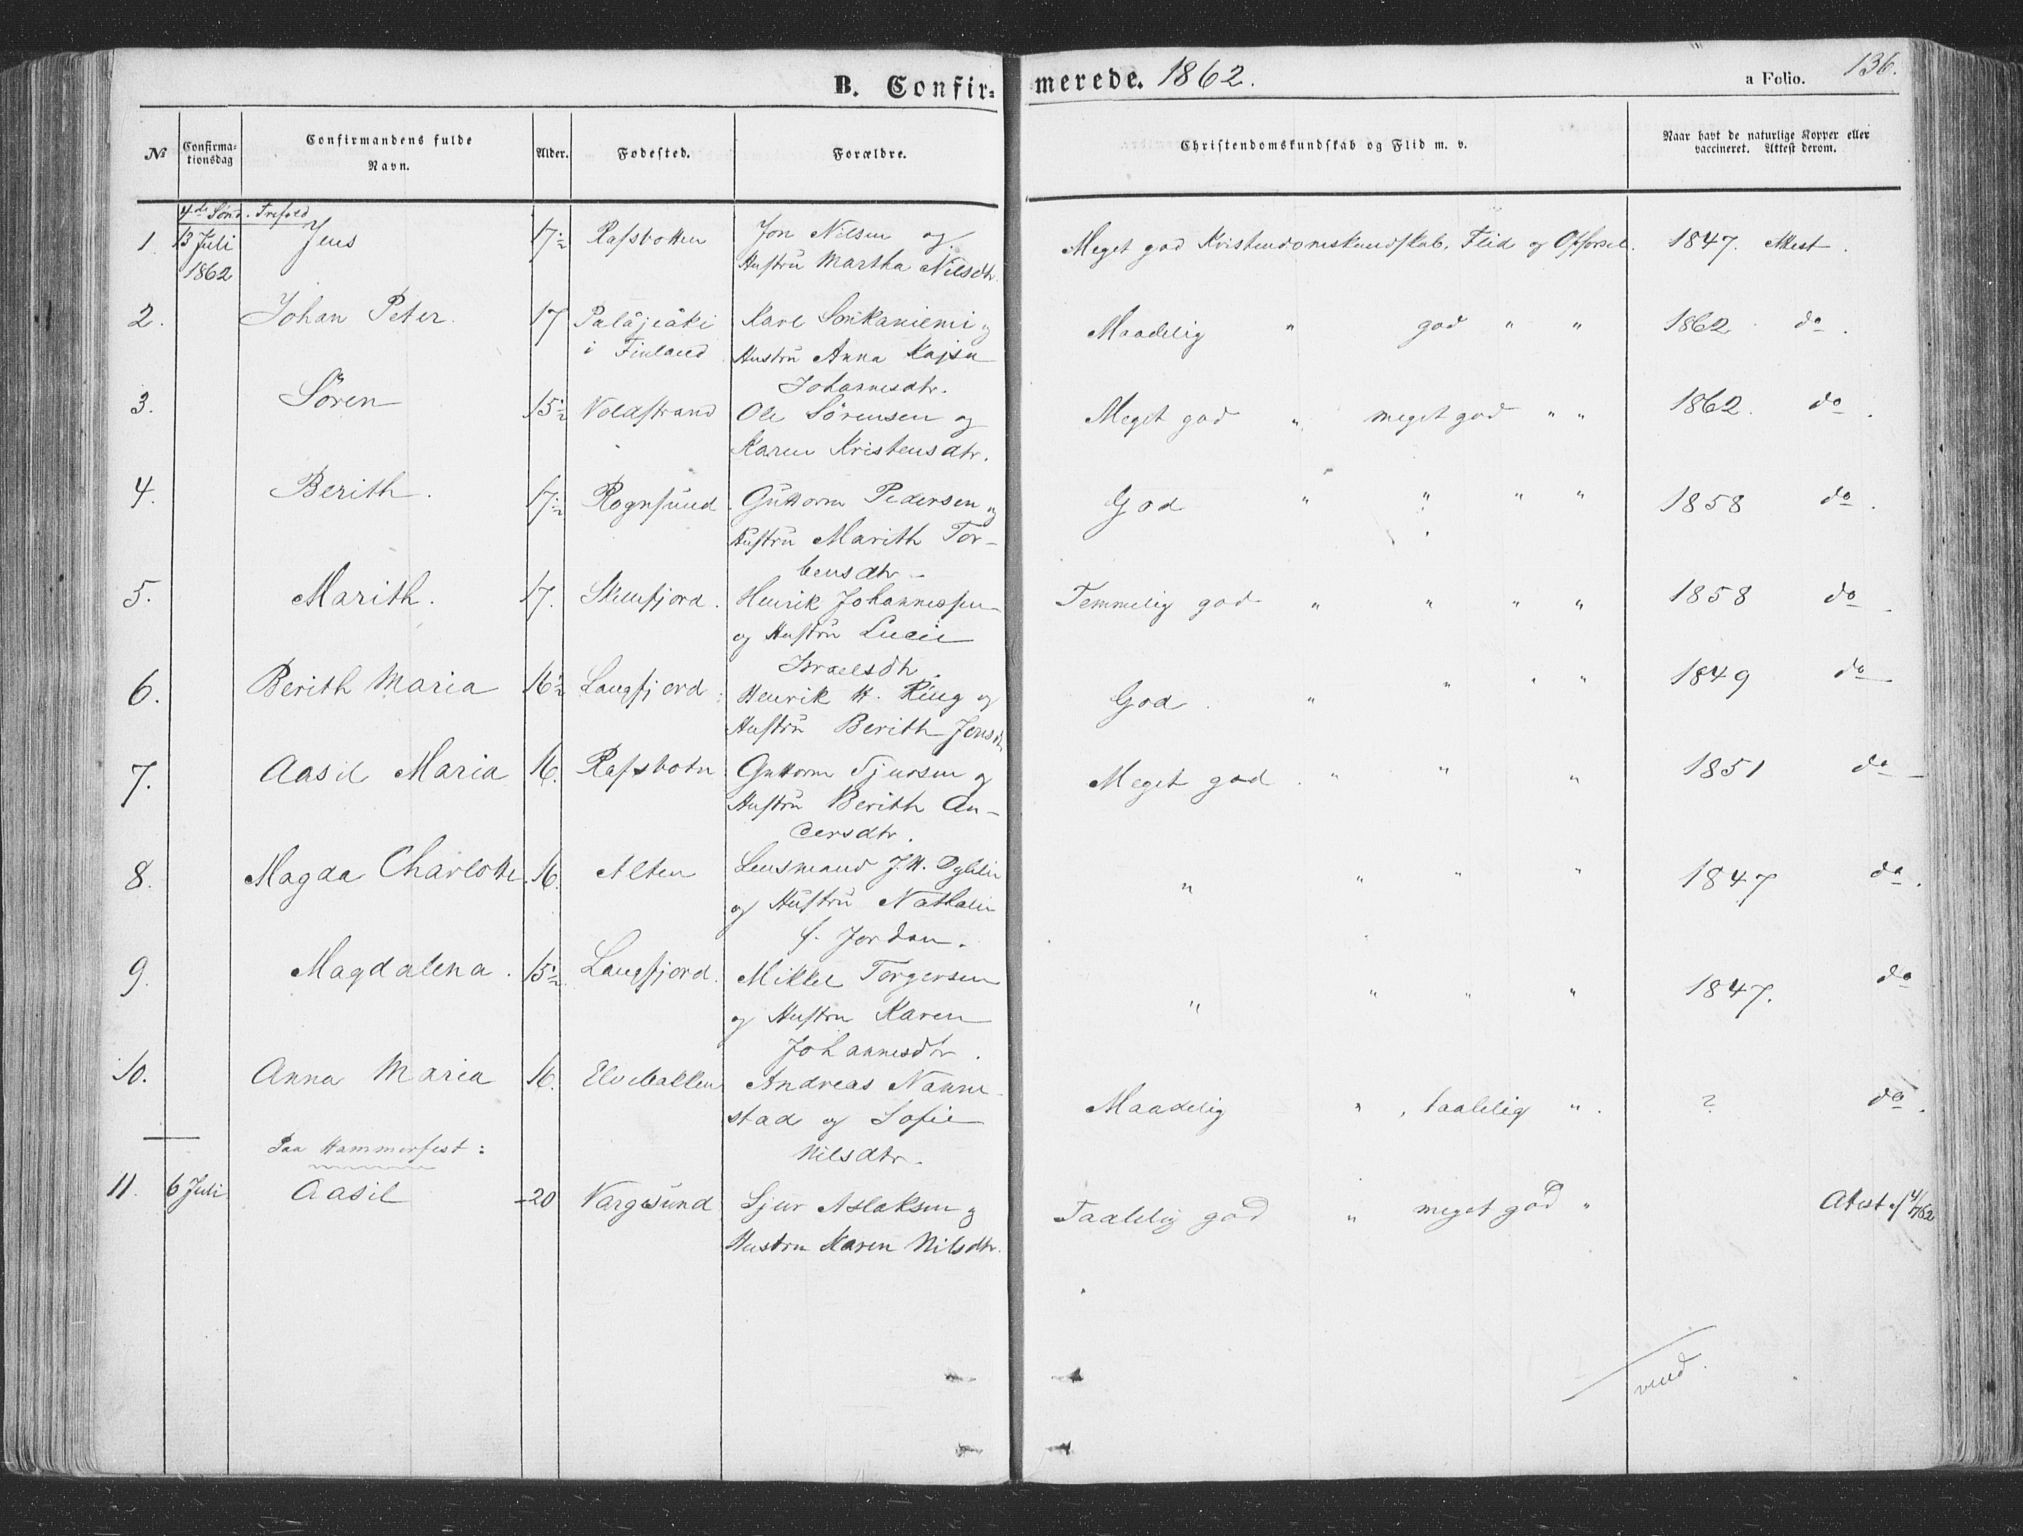 B. Confir= merede. 1862. a Folio. 136.
No Confirma-tionsdag Confirmandens fulde Navn. Alder. Fødested. Forældre. Christendomskundskab og Flid m. v. Naar havt de naturlige Kopper eller vaccineret. Attest derom.
4de Sönd. Trefold
1. 13 Juli Jens 17½ Rafsbotten Jon Nilsen og Meget god Kristendomskundskab, Flid og Opförsel. 1847. Attest.
1862 Hustru Martha Nilsdtr.
2. Johan Peter. 17 Palajoäki Karl og Maadelig " god " " 1862. do.
i Finland Hustru Anna Kajsa
Johannesdtr.
3. Sören 15½ Noldstrand Ole Sörensen og Meget god " meget god " " 1862. do.
Karen Kristensdtr.
4. Berith. 17½ Rognsund Guttorm Pedersen og God " " " " 1858 do.
Hustru Marith Tor-
bensdtr.
5. Marith. 17. Skillefjord. Henrik Johannessen Temmelig god " " " " 1858 do.
og Hustru Lucie
Israelsdtr.
6. Berith Maria 16½ Langfjord. Henrik H. Ring og God. " " " " 1849 do
Hustru Berith Jensdtr
7. Aasil Maria 16. Rafsbotn Guttorm Sjursen og Meget god. " " " 1851 do
Hustru Berith An-
dersdtr.
8. Magda Charlotte. 16. Alten Lensmand J. H. og " " " " 1847 do.
og Hustru Nathalie
f. Jordan.
9. Magdalena. 15½ Langfjord. Mikkel Torgersen " " " " 1847. do
og Hustru Karen
Johannesdtr.
10. Anna Maria 16. Elvebakken Andreas Nanne- Maadelig " , taalelig ". ? do.
stad og Sofie
Paa Hammerfest: Nilsdtr.
11. 6 Juli Aasil 20 Vargsund Sjur Aslaksen og Taalelig god " meget god " Attest af
Hustru Karen Nilsdtr.
vend.